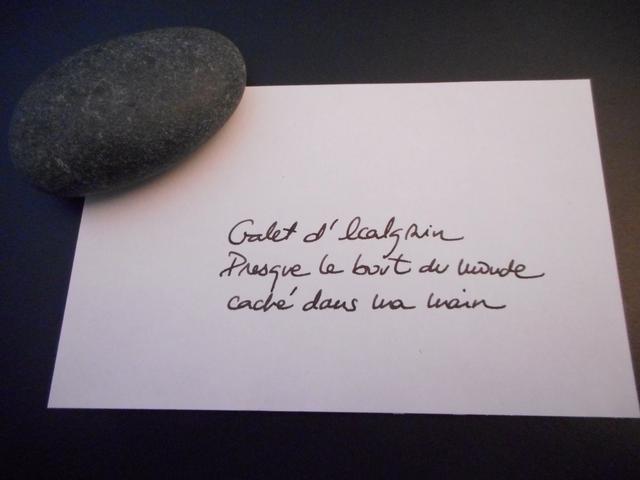 Galet d'Ecalgrin
Presque le bout du monde
caché dans ma main